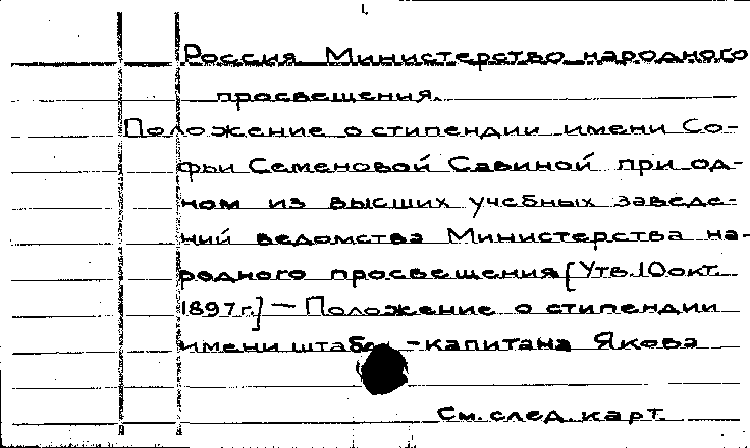 Россия Министерство народного
просвещения.
Положение о стипендии имени Со-
фьи Семеновой Савиной при од-
ном из высших учебных заведе-
ний ведомства Министерства на-
родного просвещения [Утв. 10 окт.
1897 г.] — Положение о стипендии
имени штабс-капитана Якова
См. след. карт.